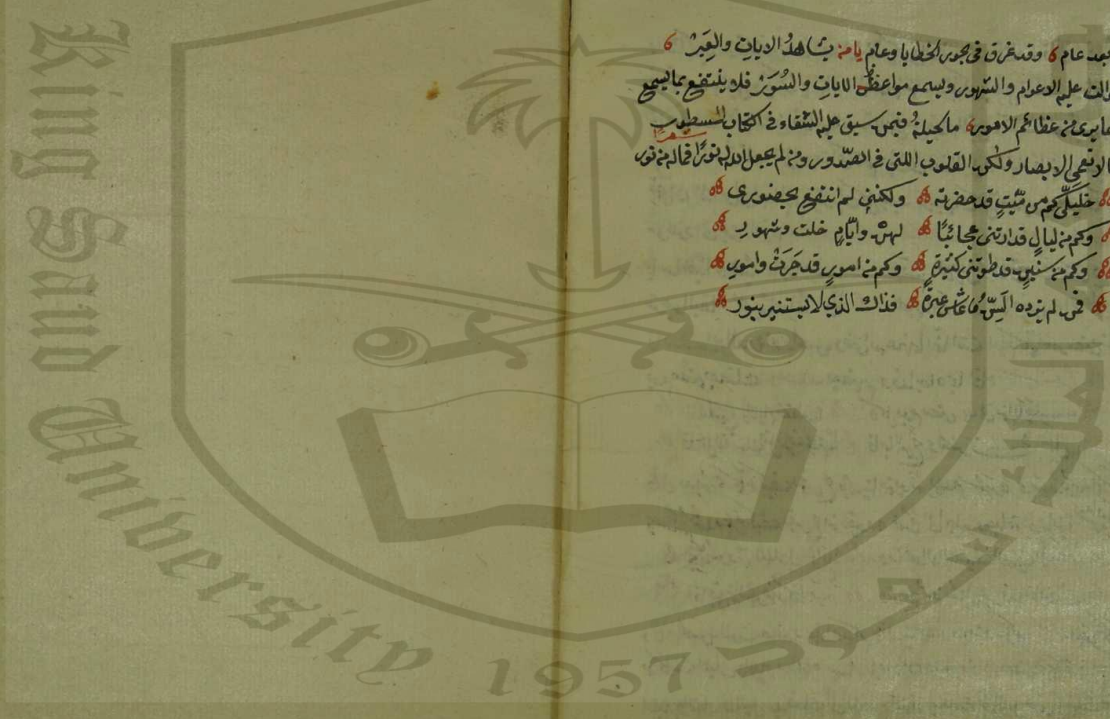 بعد عام وقد غرق في بحور الخطايا وعام يا من يشاهد الايات والعِبَر
والت عليه الاعوام والشهور ويسمع مواعظ الايات والسُوَر فلا ينتفع بما يسمع
ما يرى من عظائم الامور ما الحيلةُ فيمن سبق عليه الشقاء في الكتاب المسطور
لا تعمى الابصار ولكن القلوب اللتي في الصّدور ومن لم يجعل الله له نورًا فماله من نور
خليلَيَّ كم من مَيّتٍ قد حضرته ولكنني لم انتفع بحضوري
وكم من ليالٍ قد ارتني عجائبًا لهنّ وايّامٍ خلت وشهورِ
وكم من سنينٍ قد طوتني كثيرةٍ وكم من امورٍ قد جَرَتْ وامورِ
فمن لم يزده السِّنُّ ما عاش عبرةً فذاك الذي لا يستنير بنور
King Saud University
1957